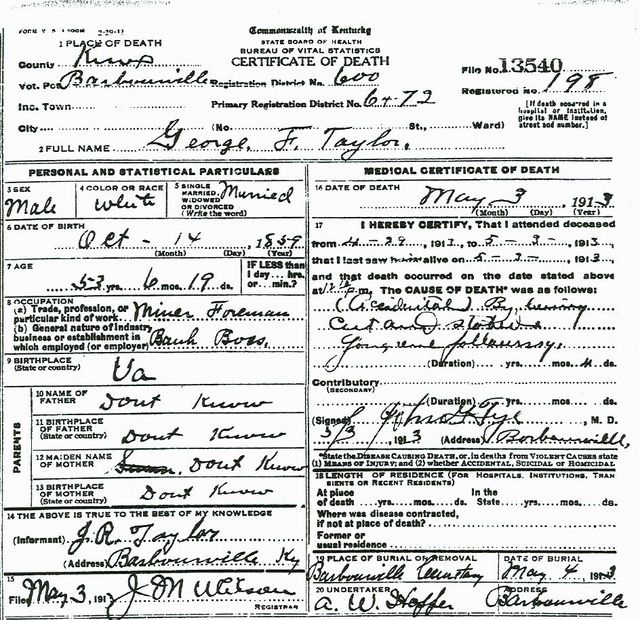 Commonwealth of Kentucky
STATE BOARD OF HEALTH
BUREAU OF VITAL STATISTICS
CERTIFICATE OF DEATH
1 PLACE OF DEATH
County Knox
Vot. Pct Barbourville Registration District No. 600
File No. 13540
Registered No. 198
Inc. Town Primary Registration District No. 6472
[If death occurred in a hospital or institution, give its NAME instead of street and number.]
City (No. St., Ward)
2 FULL NAME George F. Taylor.
PERSONAL AND STATISTICAL PARTICULARS
3 SEX Male
4 COLOR OR RACE White
5 SINGLE MARRIED, WIDOWED OR DIVORCED (Write the word) Married
6 DATE OF BIRTH
Oct - 14 1859
(Month) (Day) (Year)
7 AGE 53 yrs. 6 mos. 19 ds.
IF LESS than 1 day ... hrs. or ... min.?
8 OCCUPATION
(a) Trade, profession, or particular kind of work Miner Foreman
(b) General nature of industry business or establishment in which employed (or employer) Bank Boss.
9 BIRTHPLACE (State or country) Va
PARENTS
10 NAME OF FATHER Dont Know
11 BIRTHPLACE OF FATHER (State or country) Dont Know
12 MAIDEN NAME OF MOTHER Dont Know
13 BIRTHPLACE OF MOTHER (State or country) Dont Know
14 THE ABOVE IS TRUE TO THE BEST OF MY KNOWLEDGE
(Informant) J.R. Taylor
(Address) Barbourville Ky
15
Filed May 3, 191 J M Wilson
REGISTRAR
MEDICAL CERTIFICATE OF DEATH
16 DATE OF DEATH
May 3, 1913
(Month) (Day) (Year)
17 I HEREBY CERTIFY, That I attended deceased
from 4-29, 1913, to 5-3-, 1913,
that I last saw alive on 5-3-, 1913,
and that death occurred on the date stated above
at m. The CAUSE OF DEATH* was as follows:
(Accidental) By being
Cut and
Gangrene following.
(Duration) yrs. mos. 4 ds.
Contributory
(SECONDARY)
(Duration) yrs. mos. ds.
(Signed) Tye, M. D.
5/3, 1913 (Address) Barbourville,
*State the DISEASE CAUSING DEATH, or, in deaths from VIOLENT CAUSES state
(1) MEANS OF INJURY; and (2) whether ACCIDENTAL, SUICIDAL OR HOMICIDAL
18 LENGTH OF RESIDENCE (FOR HOSPITALS, INSTITUTIONS, TRANSIENTS OR RECENT RESIDENTS)
At place of death yrs. mos. ds. In the State yrs. mos. ds.
Where was disease contracted, if not at place of death?
Former or usual residence
19 PLACE OF BURIAL OR REMOVAL Barbourville Cemetary
DATE OF BURIAL May 4, 1913
20 UNDERTAKER A. W. Hoffer
ADDRESS Barbourville